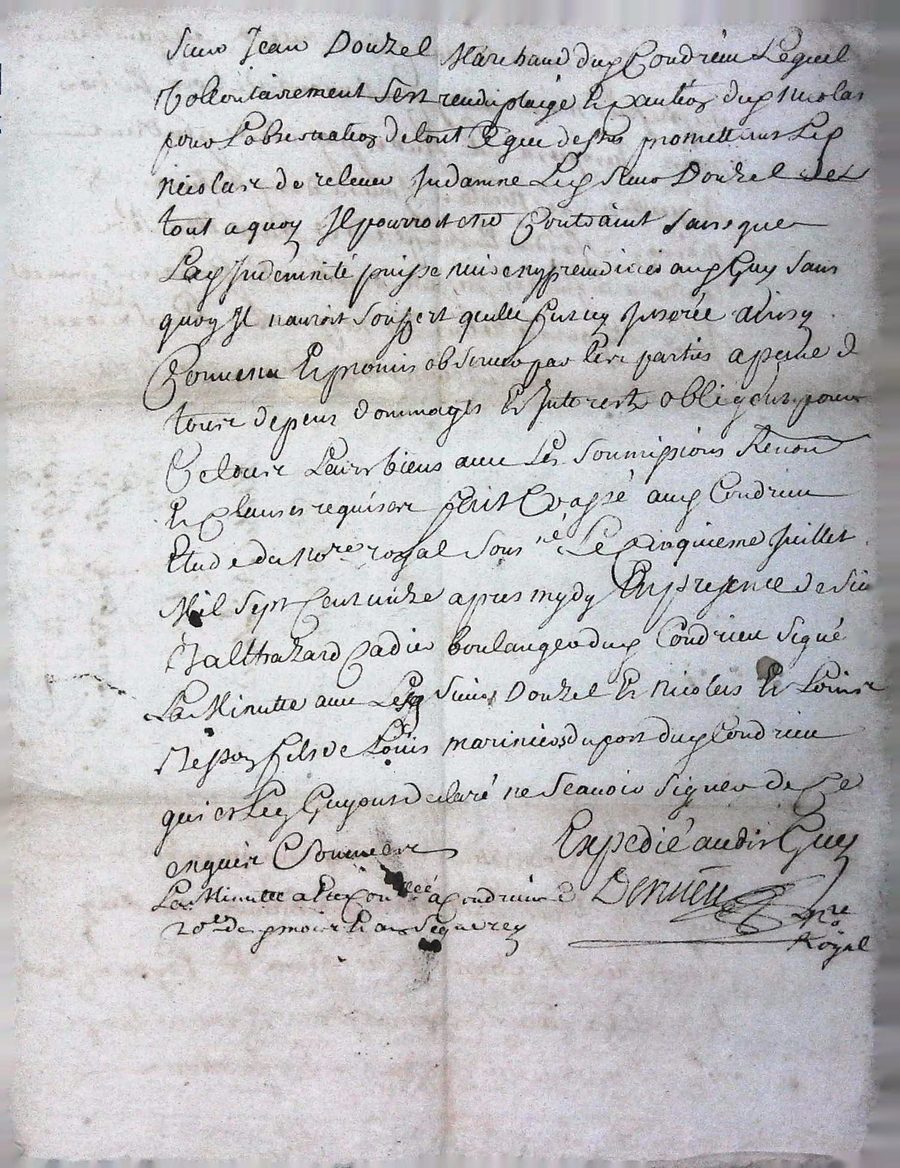 Sieur Jean Douzel Marchand dud Condrieu Lequel
Vollontairement sest rendu plaige Et caution dud Nicolas
pour Lobservation de tout Ce que dessus promettant Led
Nicolas de relever Indamne Led Sieur Douzel de
tout a quoy Il pourroit estre Contraint sans que
Lad Indemnité puisse nuire ny préjudicier aud Guy sans
quoy Il nauroit souffert quelle fut icy Inserée ainsy
Convenu Et promis observer par les parties a peine de
tous depens dommages Et Interests obligeant pour
Ce tous Leurs biens avec Les Soumissions Renon
Et Clauses requises fait Et passé aud Condrieu
Etude du No.re royal sous.né Le Cinquieme Juillet
Mil Sept Cent unze apres mydy En presence de Sieur
Balthazard Cadier boulanger dud Condrieu Signé
La Minutte avec Lesd Sieurs Douzel Et Nicolas Et Louis
fils de Louis marinier du port dud Condrieu
qui et Led Guy ont declaré ne Scavoir Signer de Ce
enquis Et Sommés
Expedié audit Guy
La Minutte a Eté Conllée a Condrieu Le
20e du p mois Et an Signé Rey
Dervieu
n.re
Royal